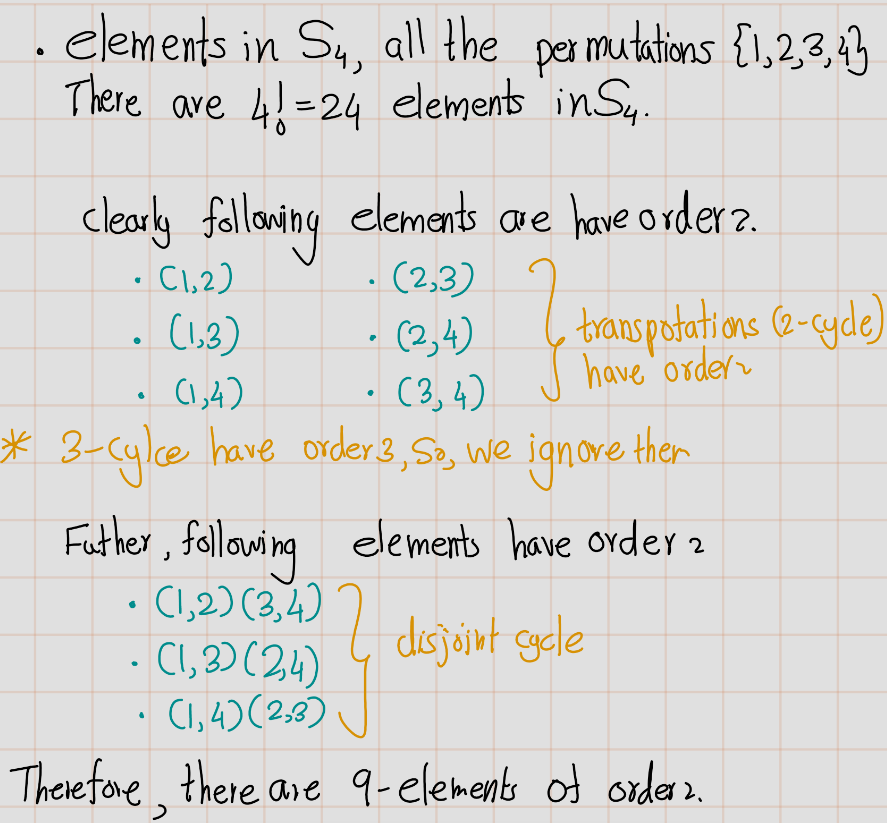 • elements in S₄, all the permutations {1,2,3,4}
There are 4! = 24 elements in S₄.
clearly following elements are have order 2.
• (1,2) • (2,3)
• (1,3) • (2,4)
• (1,4) • (3,4)
transpotations (2-cycle)
have order 2
* 3-cylce have order 3, So, we ignore them
Futher, following elements have order 2
• (1,2)(3,4)
• (1,3)(2,4)
• (1,4)(2,3)
disjoint cycle
Therefore, there are 9-elements of order 2.